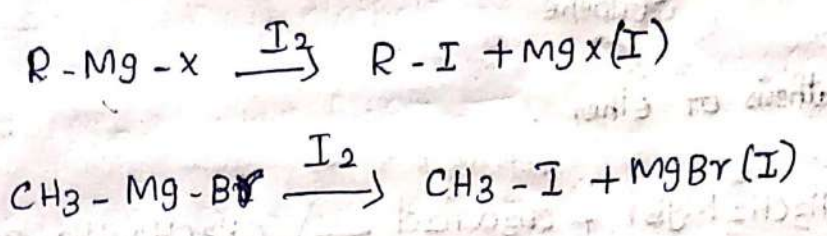 R - Mg - X $\xrightarrow{I_2}$ R - I + Mg X(I)
CH3 - Mg - Br $\xrightarrow{I_2}$ CH3 - I + MgBr(I)